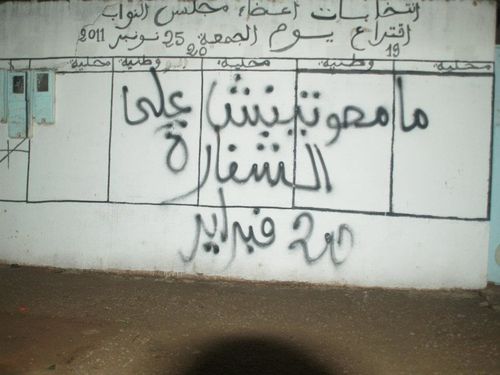 انتخابات أعضاء مجلس النواب
اقتراع يوم الجمعة 25 نونبر 2011
19 20
محلية وطنية محلية وطنية محلية
مامصوتينش على
الشفارة
20 فبراير